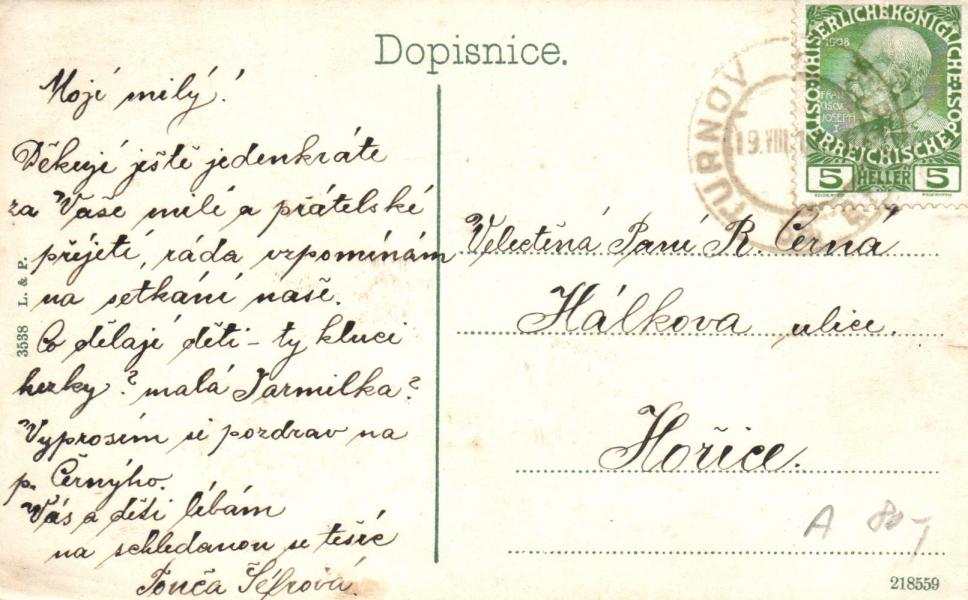 Dopisnice.
Mojí milý!
Děkují ještě jedenkráte
za Vaše milé a přátelské
přijetí, ráda vzpomínám
na setkání naše.
Co dělají děti – ty kluci
hezky? malá Jarmilka?
Vyprosím si pozdrav na
p. Černýho.
Vás a děti líbám
na schledanou se těšíc
Tonča
3538 L. & P.
TURNOV
19. VIII
KAISERLICHE KÖNIGLICHE
ÖSTERREICHISCHE POST
1908
FRANCISCVS JOSEPH I
5 HELLER 5
Velectěná Paní R. Černá
Hálkova ulice.
Hořice.
A 80-,
218559